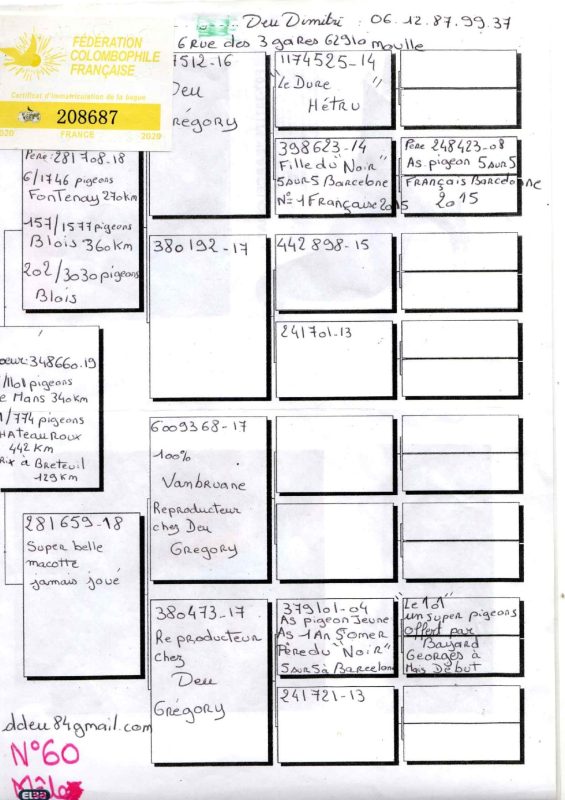 Deu Dimitri : 06.12.87.99.37
6 Rue des 3 gares 62910 moulle
FÉDÉRATION
COLOMBOPHILE
FRANÇAISE
Certificat d'immatriculation de la bague
208687
2020 FRANCE 2020
7512-16
Deu
Grégory
1174525-14
"Le Dure"
Hétru
398623-14
Fille du "Noir"
5 sur 5 Barcelone
N° 1 Française 2015
Père 248423-08
As pigeon 5 sur 5
Français Barcelonne
2015
Père: 281708-18
6/1746 pigeons
Fontenay 270km
157/1577 pigeons
Blois 360km
202/3030 pigeons
Blois
380192-17
442898-15
241701-13
oeur: 348660.19
/1101 pigeons
e Mans 340km
1/774 pigeons
HATeauRoux
442 Km
RIX à BReteuil
129 Km
6009368-17
100%
Vanbruane
Reproducteur
chez Deu
Gregory
281659-18
Super belle
macotte
jamais joué
380473-17
Reproducteur
chez
Deu
Grégory
379101-04
As pigeon Jeune
As 1 An Somer
Père du "Noir"
5 sur 5 à Barcelone
"Le 101"
un super pigeons
offert par
Bayard
Georges à
Mais Début
241721-13
ddeu84gmail.com
N°60
Mâle